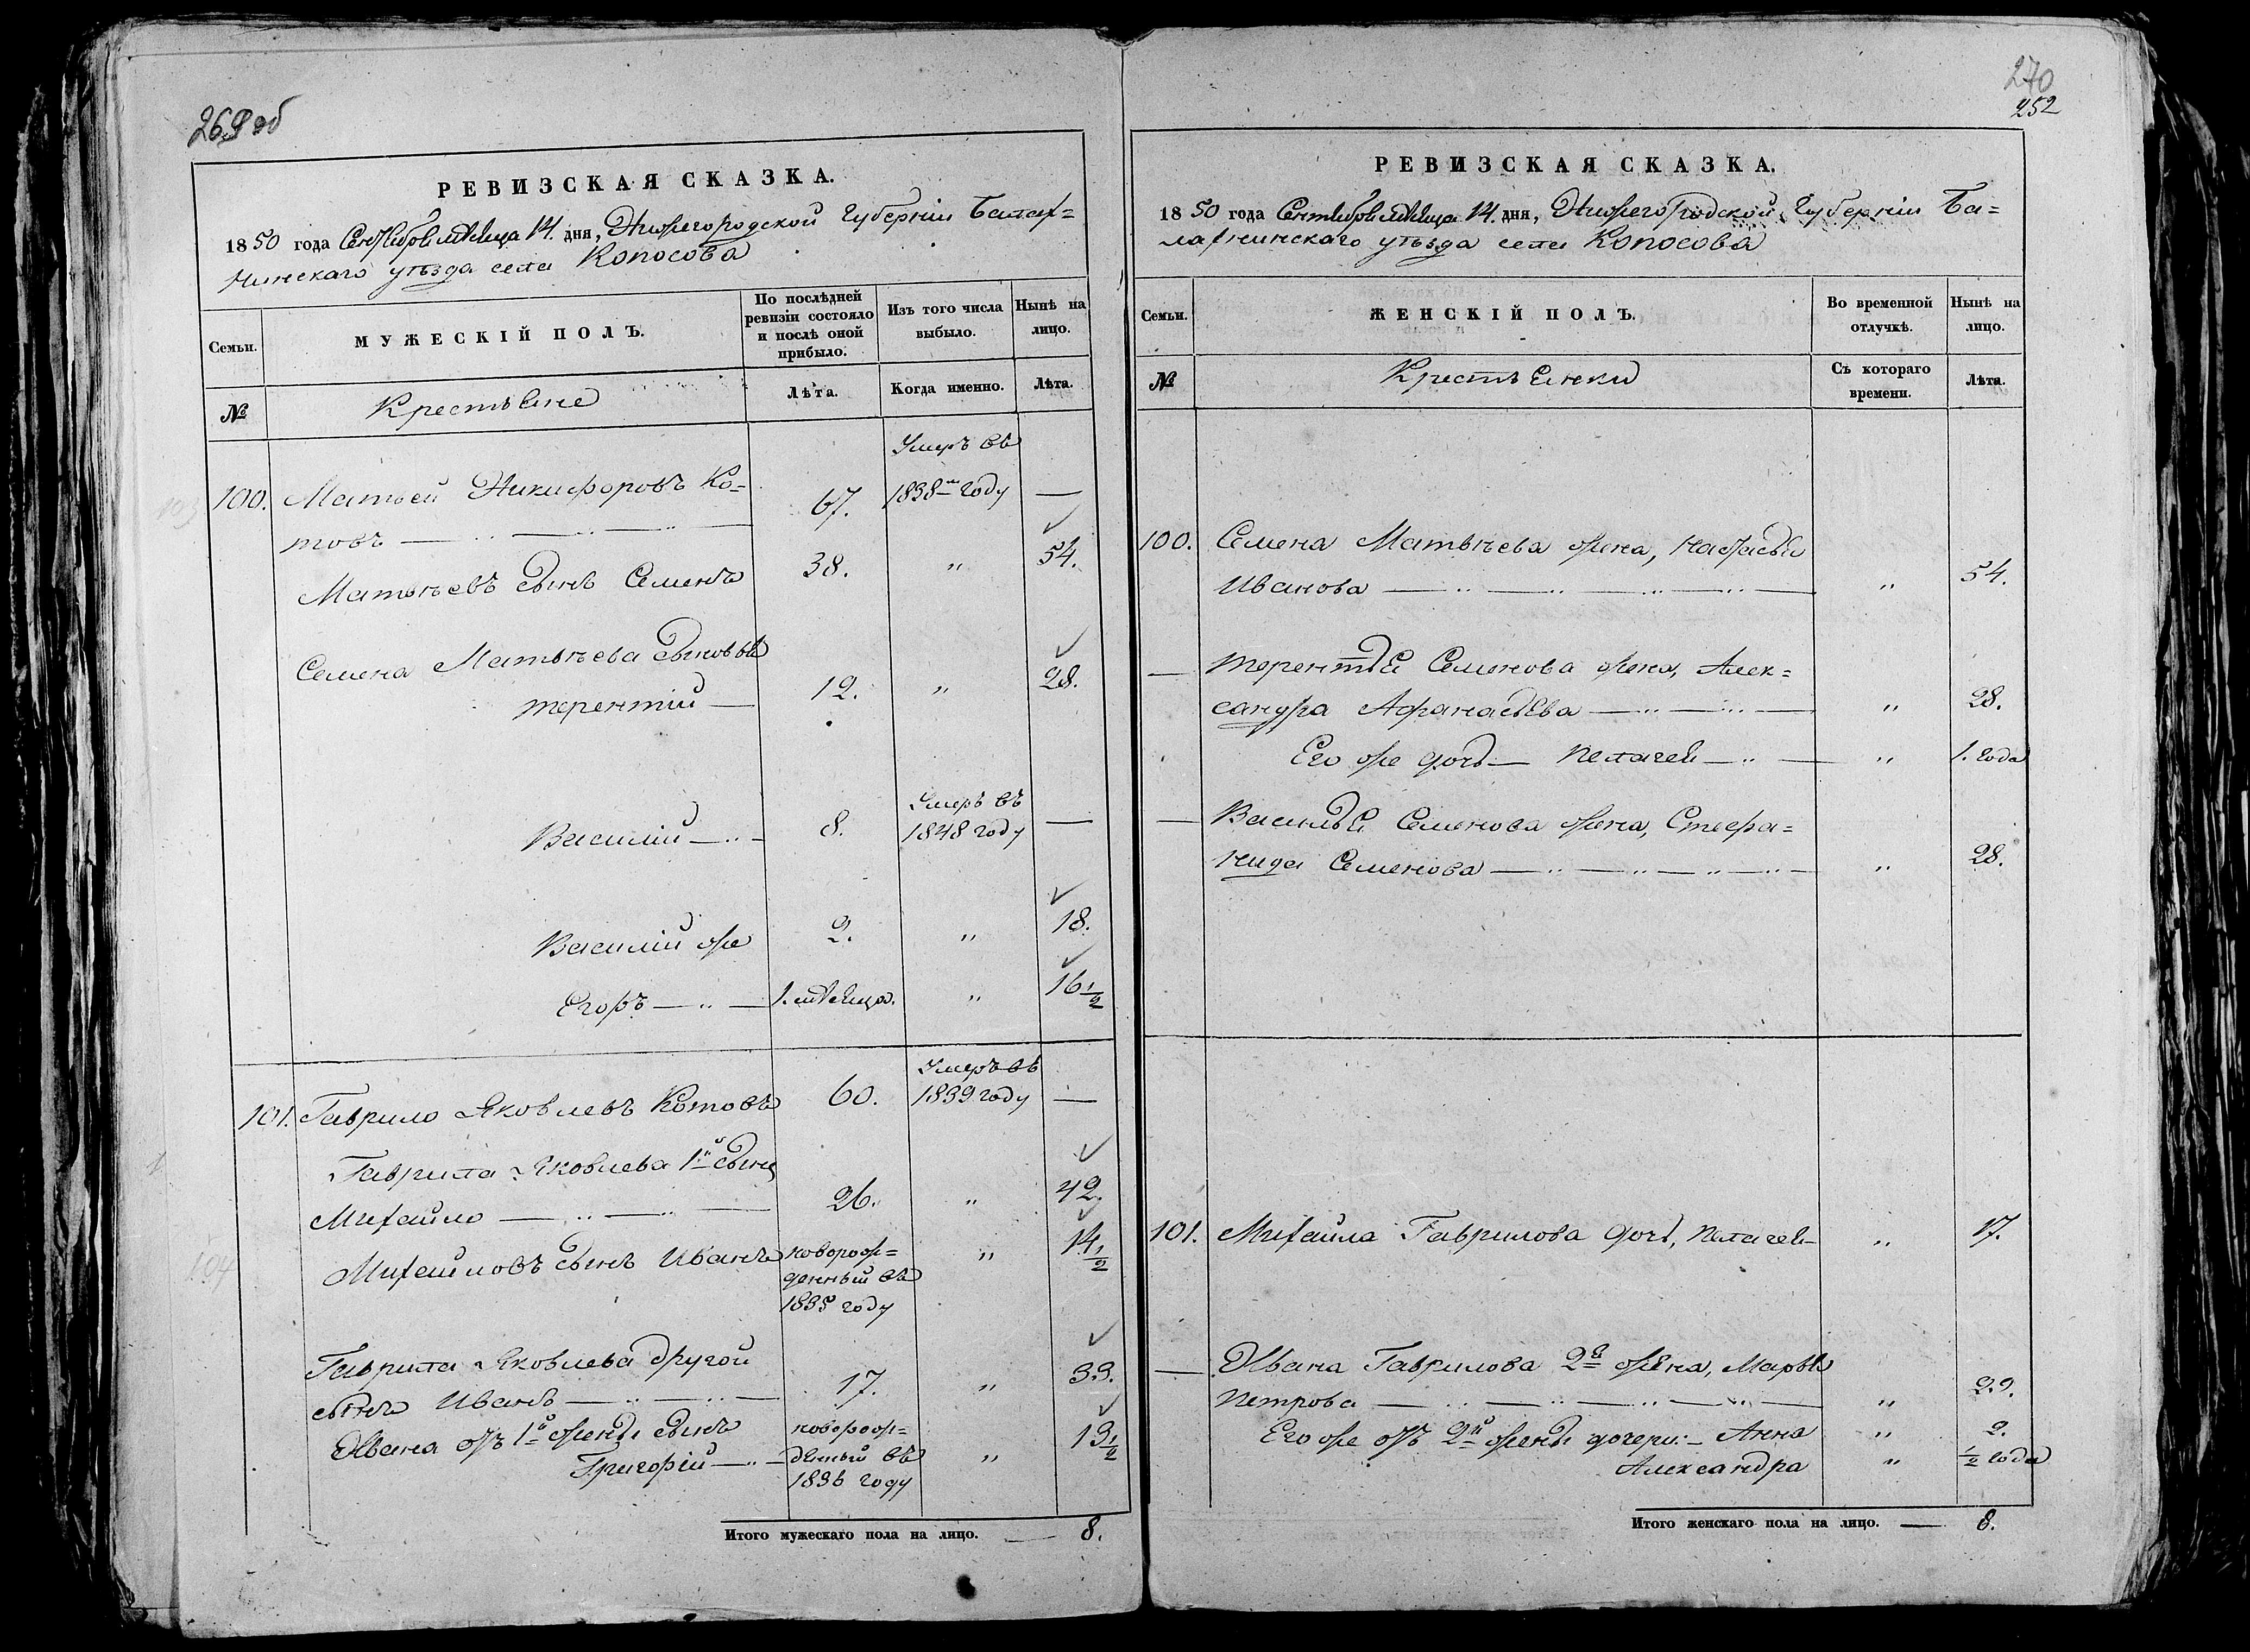 269 об
РЕВИЗСКАЯ СКАЗКА.
1850 года Сентября месяца 14. дня, Нижегородской Губерніи Балах=
нинскаго уѣзда села Копосова
Семьи.
МУЖЕСКІЙ ПОЛЪ.
По послѣдней ревизіи состояло и послѣ оной прибыло.
Изъ того числа выбыло.
Нынѣ на лицо.
№
Крестьяне
Лѣта.
Когда именно.
Лѣта.
Умеръ въ
100. Матвей Никифоровъ Ко= 67. 1838м году —
товъ
Матвѣевъ сынъ Семенъ 38. „ 54.
Семена Матвѣева сыновья
Терентій — 12. „ 28.
Умеръ въ
Василій — 8. 1848 году —
Василій же 2. „ 18.
Егоръ — 1. месяца. „ 16 1/2
Умеръ въ
101. Гаврило Яковлевъ Котовъ 60. 1839 году —
Гаврила Яковлева 1й сынъ
Михайло — 26. „ 42.
Михайловъ сынъ Иванъ новорож= „ 14 1/2
денный въ
1835 году
Гаврила Яковлева другой
сынъ Иванъ — 17. „ 33.
Ивана отъ 1й жены сынъ новорож=
Григорій — денный въ „ 13 1/2
1836 году
Итого мужескаго пола на лицо. — 8.
270
252
РЕВИЗСКАЯ СКАЗКА.
1850 года Сентября месяца 14. дня, Нижегородской Губерніи Ба=
лахнинскаго уѣзда села Копосова
Семьи.
ЖЕНСКІЙ ПОЛЪ.
Во временной отлучкѣ.
Нынѣ на лицо.
№
Крестьянки
Съ котораго времени.
Лѣта.
100. Семена Матвѣева жена, Настасья
Иванова — „ 54.
— Терентья Семенова жена, Алек=
сандра Афанасьева — „ 28.
Его же дочь — Пелагея — „ 1. года
— Василья Семенова жена, Стефа=
нида Семенова — „ 28.
101. Михайла Гаврилова дочь, Пелагея — „ 17.
— Ивана Гаврилова 2я жена, Марья
Петрова — „ 29.
Его же отъ 2й жены дочери: — Анна „ 2.
Александра „ 1/2 года
Итого женскаго пола на лицо. — 8.